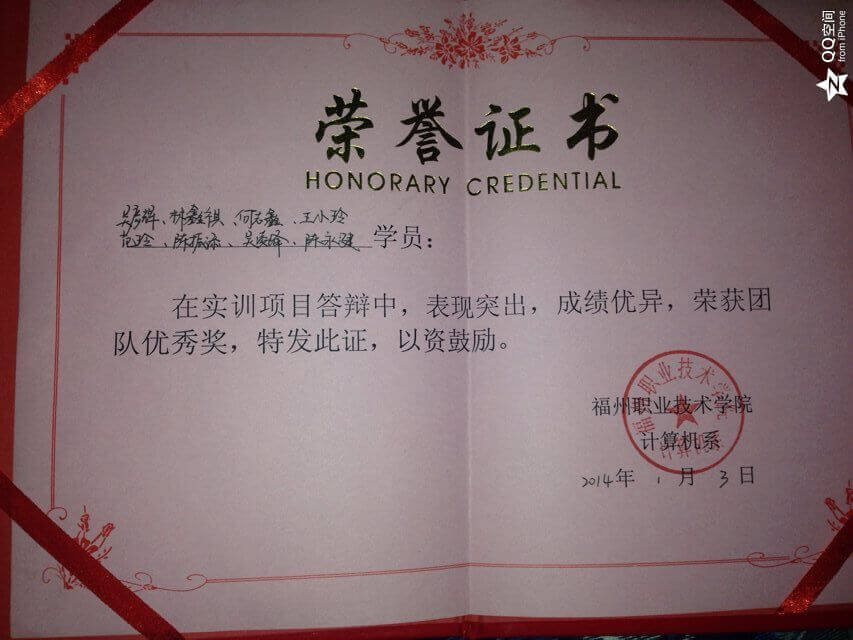 QQ空间
from iPhone
荣誉证书
HONORARY CREDENTIAL
吴彦辉、林鑫祺、何石鑫、王小玲
范玲、陈振添、吴凌峰、陈永健 学员：
在实训项目答辩中，表现突出，成绩优异，荣获团
队优秀奖，特发此证，以资鼓励。
福州职业技术学院
计算机系
2014年 1 月 3 日
福州职业技术学院
计算机系